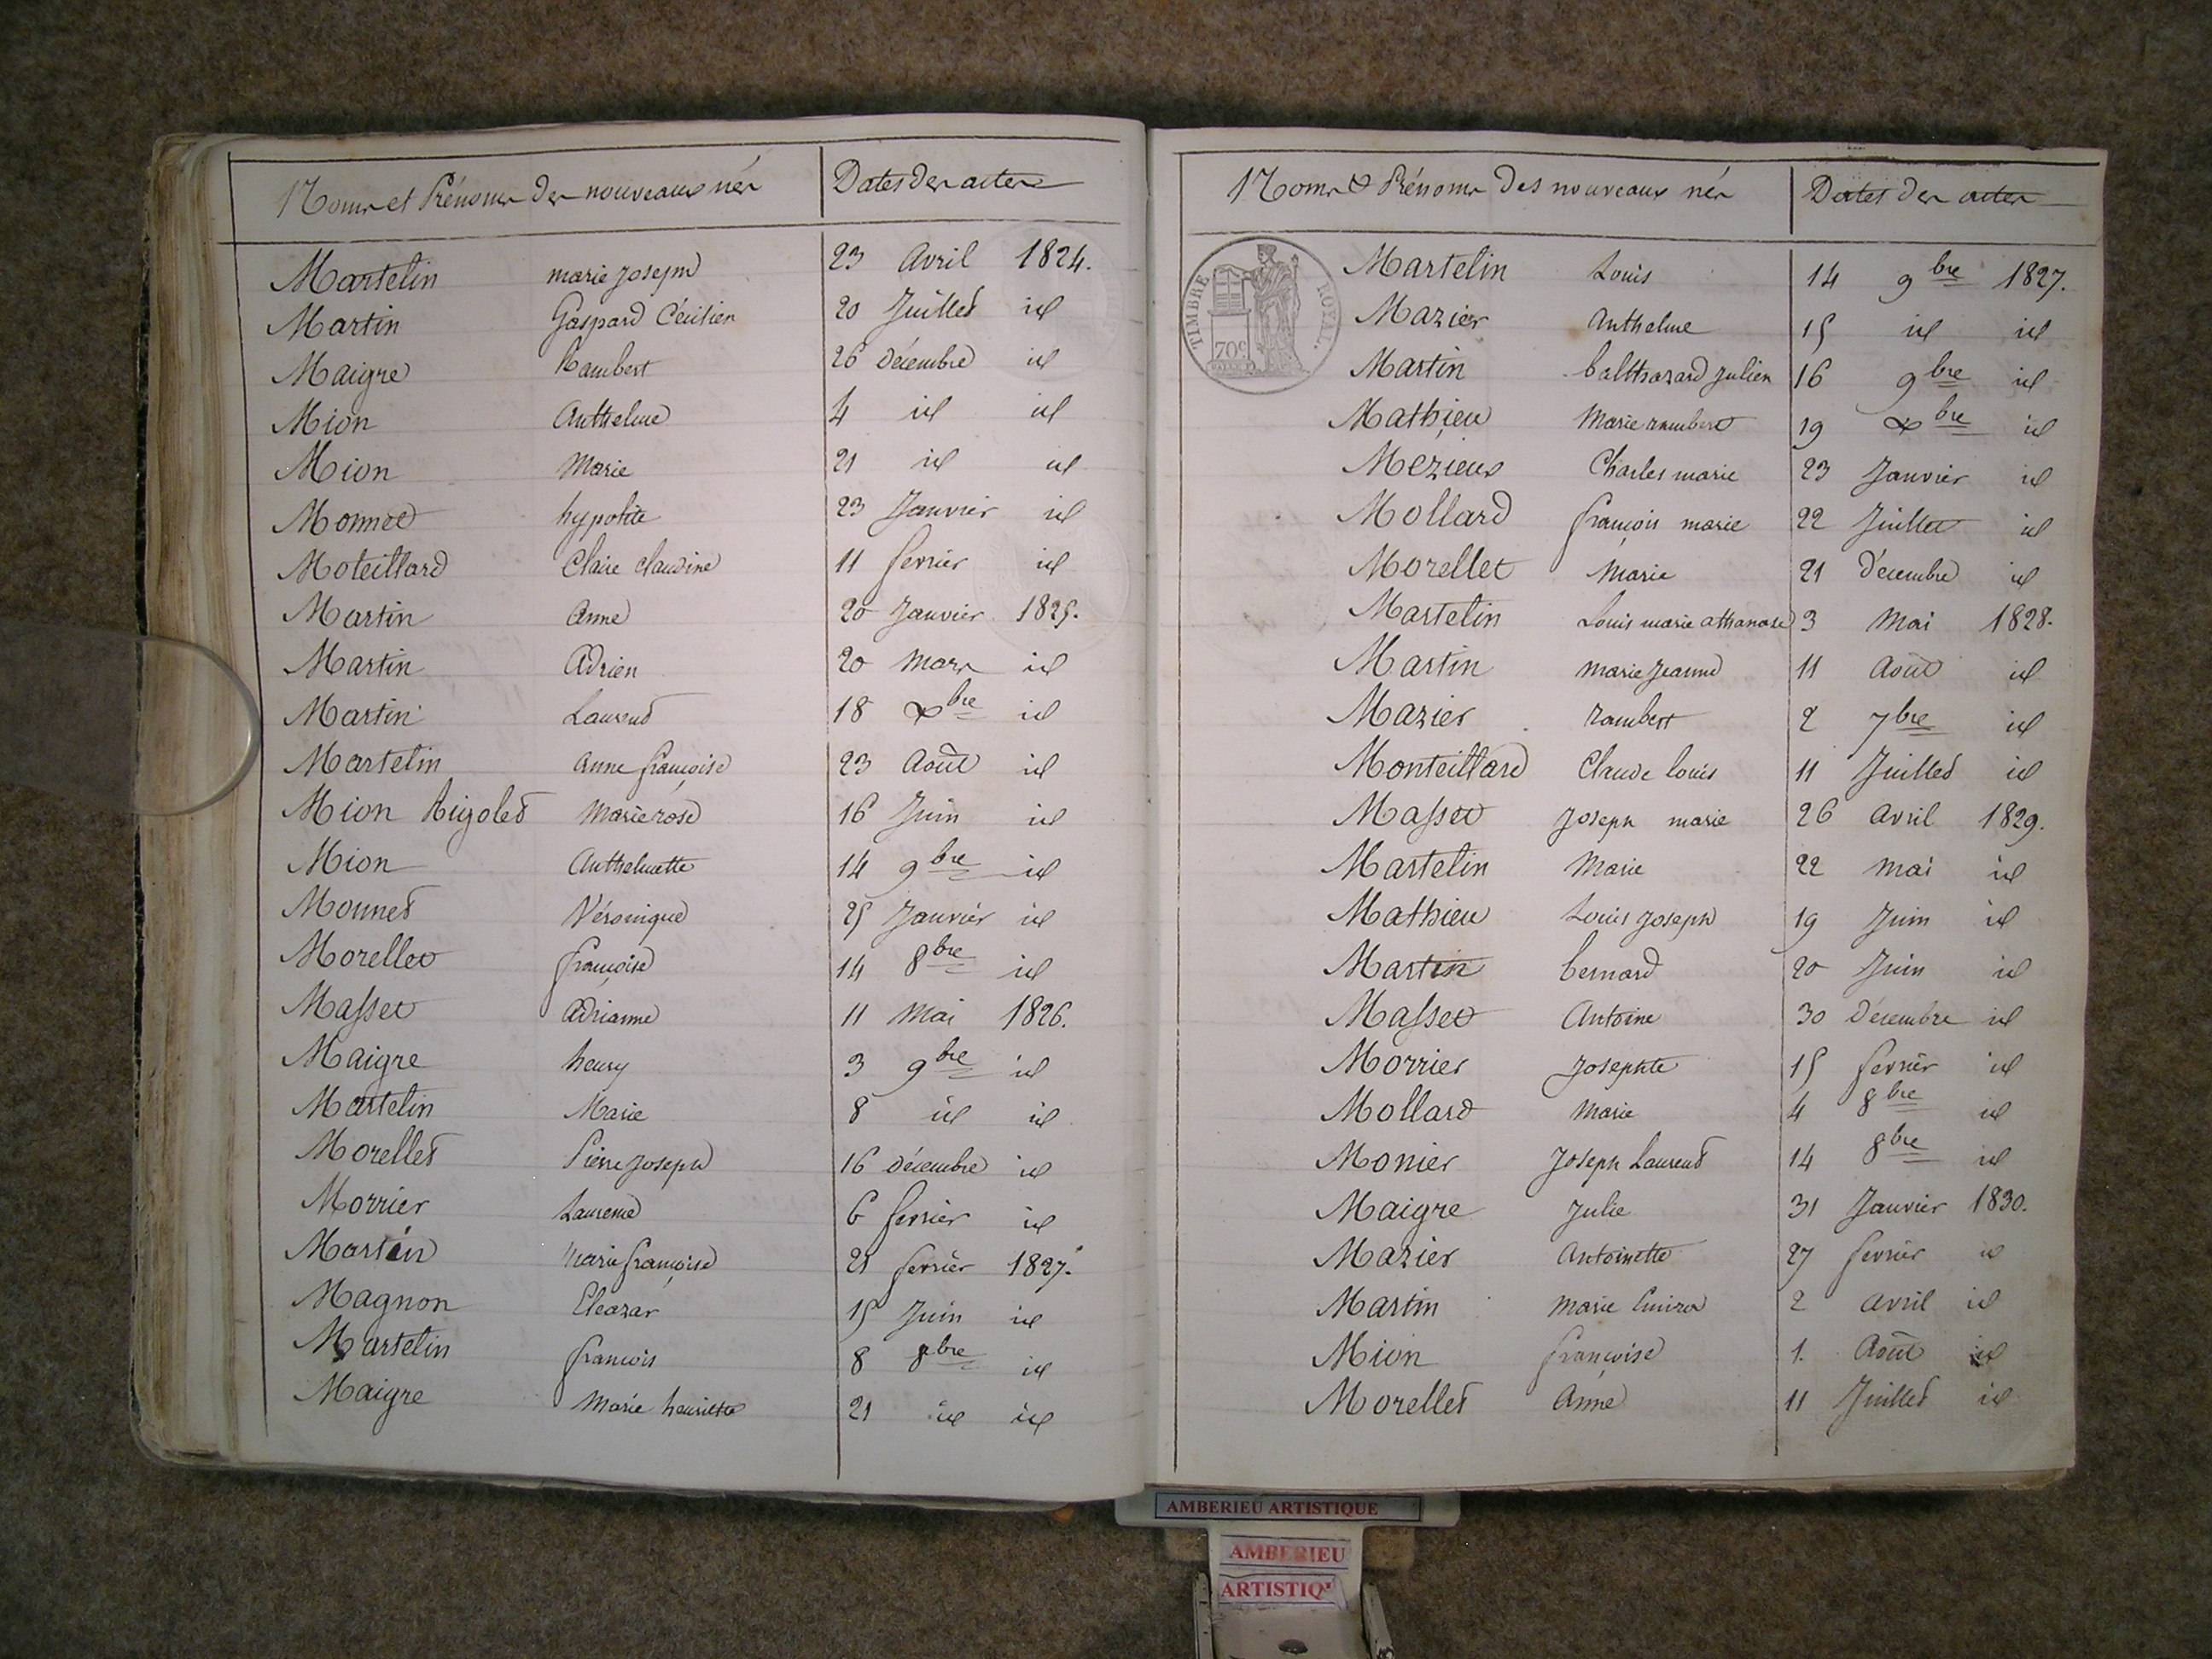 Noms et Prénoms des nouveaux nés Dates des actes
Martelin marie joseph 23 Avril 1824.
Martin Gaspard Cécilien 20 Juillet id
Maigre Rambert 26 Décembre id
Mion Anthelme 4 id id
Mion Marie 21 id id
Monnet hypolite 23 Janvier id
Moteillard Claire claudine 11 fevrier id
Martin Anne 20 Janvier 1825.
Martin Adrien 20 Mars id
Martin Laurent 18 Xbre id
Martelin Anne françoise 23 Août id
Mion Rigolet Marie rose 16 Juin id
Mion Anthelmette 14 9bre id
Monnet Véronique 25 Janvier id
Morellet françoise 14 8bre id
Masset Adrianne 11 Mai 1826.
Maigre henry 3 9bre id
Martelin Marie 8 id id
Morellet Pierre joseph 16 Décembre id
Morrier Laurence 6 fevrier id
Martin Marie françoise 21 fevrier 1827.
Magnon Eleazar 15 Juin id
Martelin françois 8 8bre id
Maigre Marie henriette 21 id id
Noms & Prénoms des nouveaux nés Dates des actes
TIMBRE ROYAL.
70c
Martelin Louis 14 9bre 1827.
Mazier Anthelme 15 id id
Martin balthazard julien 16 9bre id
Mathieu Marie rambert 19 Xbre id
Mezieux Charles marie 23 Janvier id
Mollard françois marie 22 Juillet id
Morellet Marie 21 Décembre id
Martelin Louis marie athanase 3 Mai 1828.
Martin Marie Jeanne 11 Août id
Mazier rambert 2 7bre id
Monteillard Claude louis 11 Juillet id
Masset Joseph marie 26 Avril 1829.
Martelin Marie 22 Mai id
Mathieu Louis joseph 19 Juin id
Martin bernard 20 Juin id
Masset Antoine 30 Décembre id
Morrier Josephte 15 fevrier id
Mollard Marie 4 8bre id
Monier Joseph Laurent 14 8bre id
Maigre Julie 31 Janvier 1830.
Mazier Antoinette 27 fevrier id
Martin Marie 2 Avril id
Mion françoise 1. Août id
Morellet Anne 11 Juillet id
AMBERIEU ARTISTIQUE
AMBERIEU
ARTISTIQ